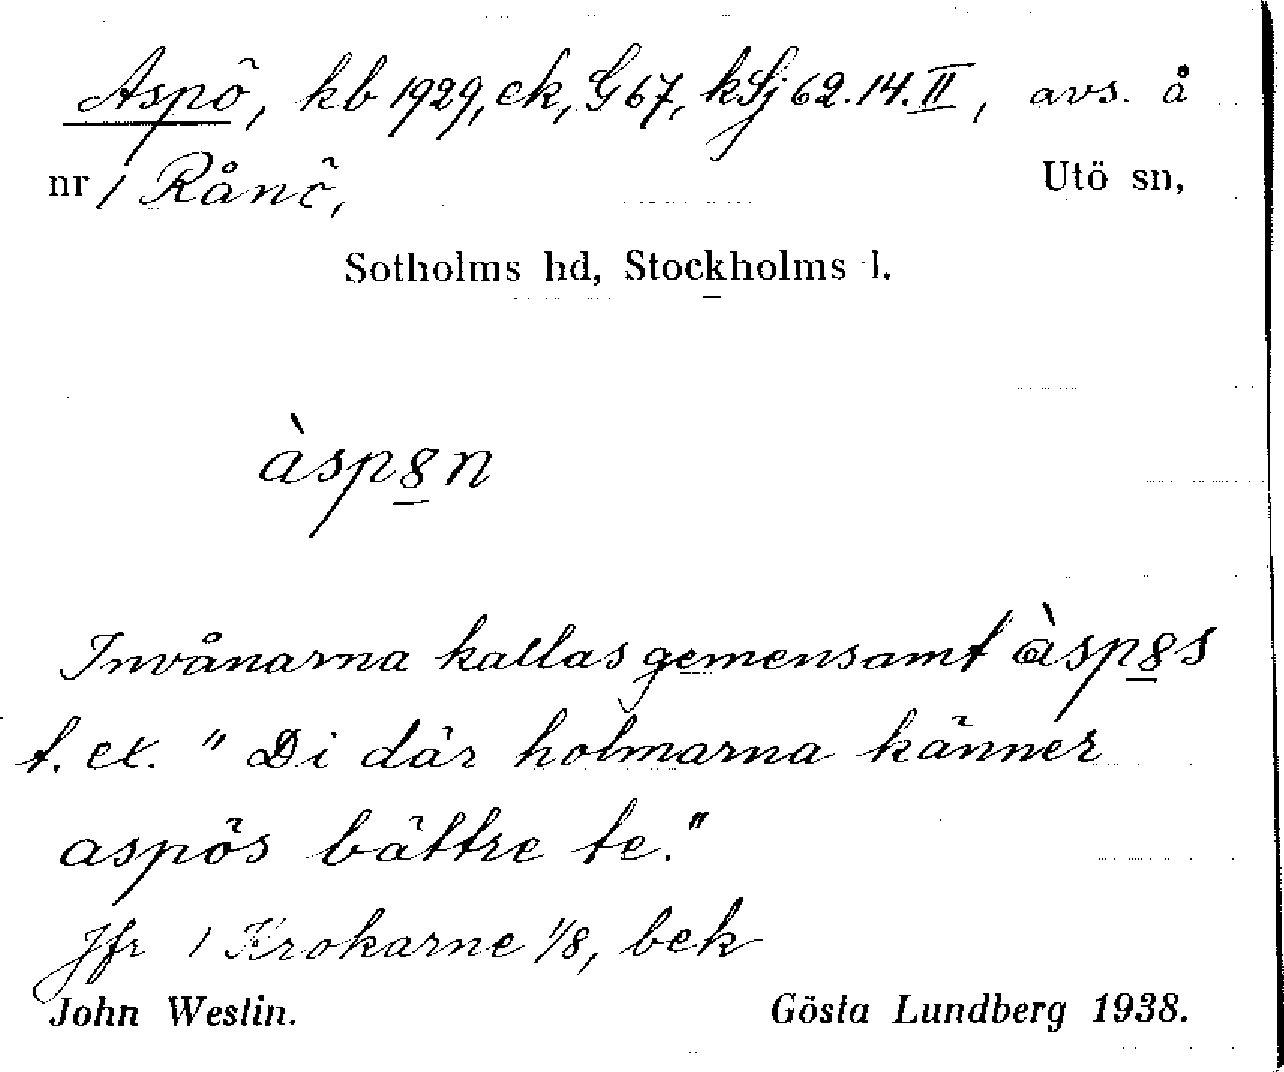 Aspö, kb 1929, ek, G 67, kSj 62.14.II, avs. å
nr 1 Rånö, Utö sn,
Sotholms hd, Stockholms l.
àsp8n
Invånarna kallas gemensamt àsp8s
t.ex. "Di där holmarna känner
aspös bättre te."
Jfr 1 Krokarne 1/8, bek
John Westin. Gösta Lundberg 1938.